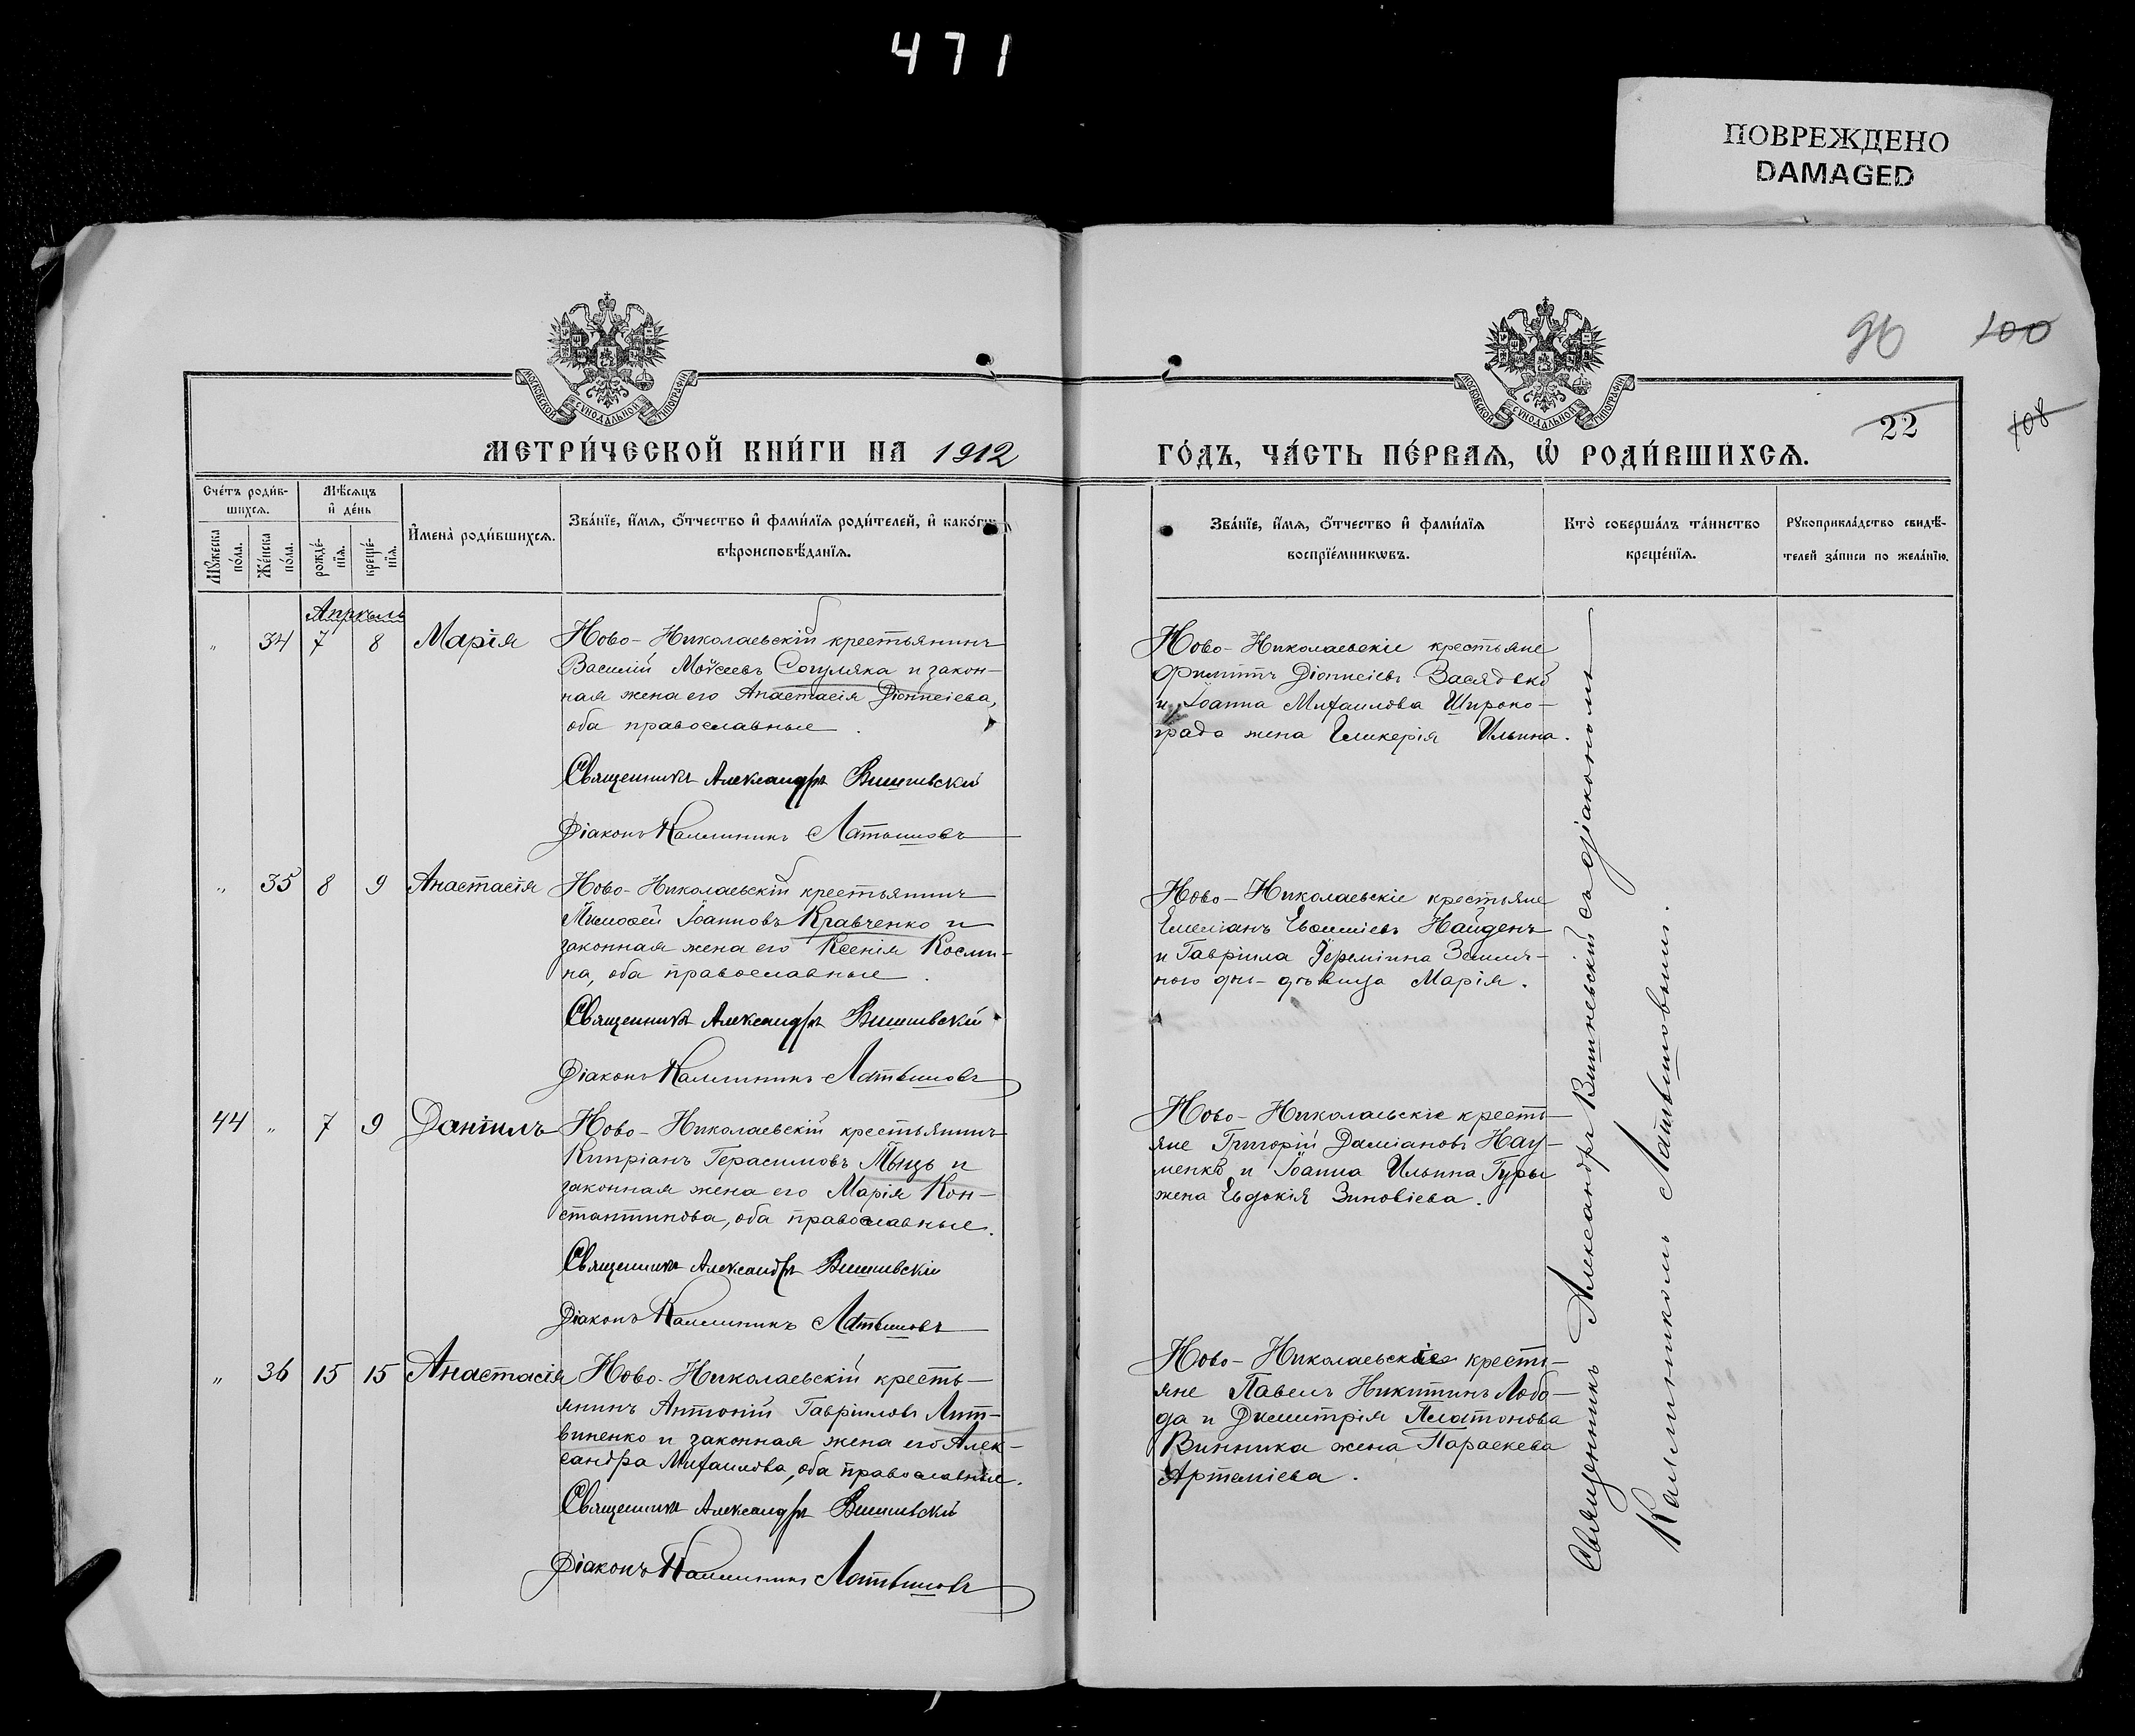 471
ПОВРЕЖДЕНО
DAMAGED
96 100
108
22
МОСКОВСКОЙ СѴНОДАЛЬНОЙ ТИПОГРАФІИ
МОСКОВСКОЙ СѴНОДАЛЬНОЙ ТИПОГРАФІИ
МЕТРИ́ЧЕСКОЙ КНИ́ГИ НА 1912
ГО́ДЪ, ЧА́СТЬ ПЕ́РВАѦ, Ѡ҆ РОДИ́ВШИХСѦ.
Сче́тъ роди́в-
шихсѧ.
Мꙋжеска по́ла.
Же́нска по́ла.
Мѣ́сѧцъ
и҆ де́нь
рожде́-
нїѧ.
креще́-
нїѧ.
И҆мена̀ роди́вшихсѧ.
Зва́нїе, и҆́мѧ, ѻ҆́тчество и҆ фами́лїѧ роди́телей, и҆ како́гѡ
вѣроисповѣ́данїѧ.
Зва́нїе, и҆́мѧ, ѻ҆́тчество и҆ фами́лїѧ
воспрїе́мникѡвъ.
Кто̀ соверша́лъ та́инство
креще́нїѧ.
Рꙋкоприкла́дство свидѣ́-
телей за́писи по жела́нїю.
Апрѣль
„ 34 7 8 Марія
Ново-Николаевскій крестьянинъ
Василій Моѵсеевъ Согуляка и закон-
ная жена его Анастасія Діонисіева,
оба православные.
Священникъ Александръ Вишневскій
Діаконъ Каллиникъ Латышовъ
Ново-Николаевскіе крестьяне
Филиппъ Діонисіевъ Засядько
и Іоанна Михаилова Широко-
града жена Гликерія Ильина.
„ 35 8 9 Анастасія
Ново-Николаевскій крестьянинъ
Тимоѳей Іоанновъ Кравченко и
законная жена его Ксенія Косми-
на, оба православные.
Священникъ Александръ Вишневскій
Діаконъ Каллиникъ Латышовъ
Ново-Николаевскіе крестьяне
Емеліанъ Евѳиміевъ Найденъ
и Гавріила Іереміина
дѣвица Марія.
44 „ 7 9 Даніилъ
Ново-Николаевскій крестьянинъ
Кипріанъ Герасимовъ и
законная жена его Марія Кон-
стантинова, оба православные.
Священникъ Александръ Вишневскій
Діаконъ Каллиникъ Латышовъ
Ново-Николаевскіе кресть-
яне Григорій Даміановъ Нау-
менко и Іоанна Ильина Гуры
жена Евдокія Зиновіева.
„ 36 15 15 Анастасія
Ново-Николаевскій кресть-
янинъ Антоній Гавріиловъ Лит-
виненко и законная жена его Алек-
сандра Михаилова, оба православные.
Священникъ Александръ Вишневскій
Діаконъ Каллиникъ Латышовъ
Ново-Николаевскіе кресть-
яне Павелъ Никитинъ Лоба-
да и Димитрія Платонова
Винника жена Параскева
Артеміева.
Священникъ Александръ Вишневскій съ діакономъ
Каллиникомъ Латышовымъ.